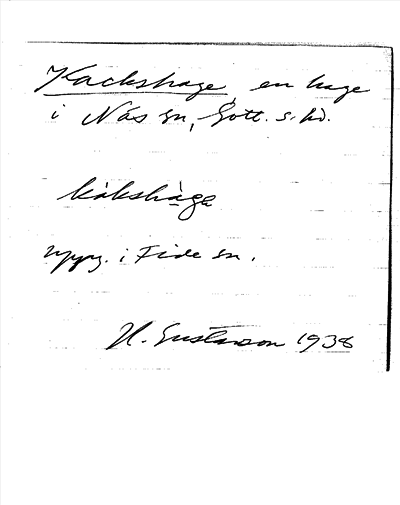 Kackshage, en hage
i Näs sn, Gotl. s. hd.
kàkshàga
uppg. i Fide sn.
H. Gustavson 1938